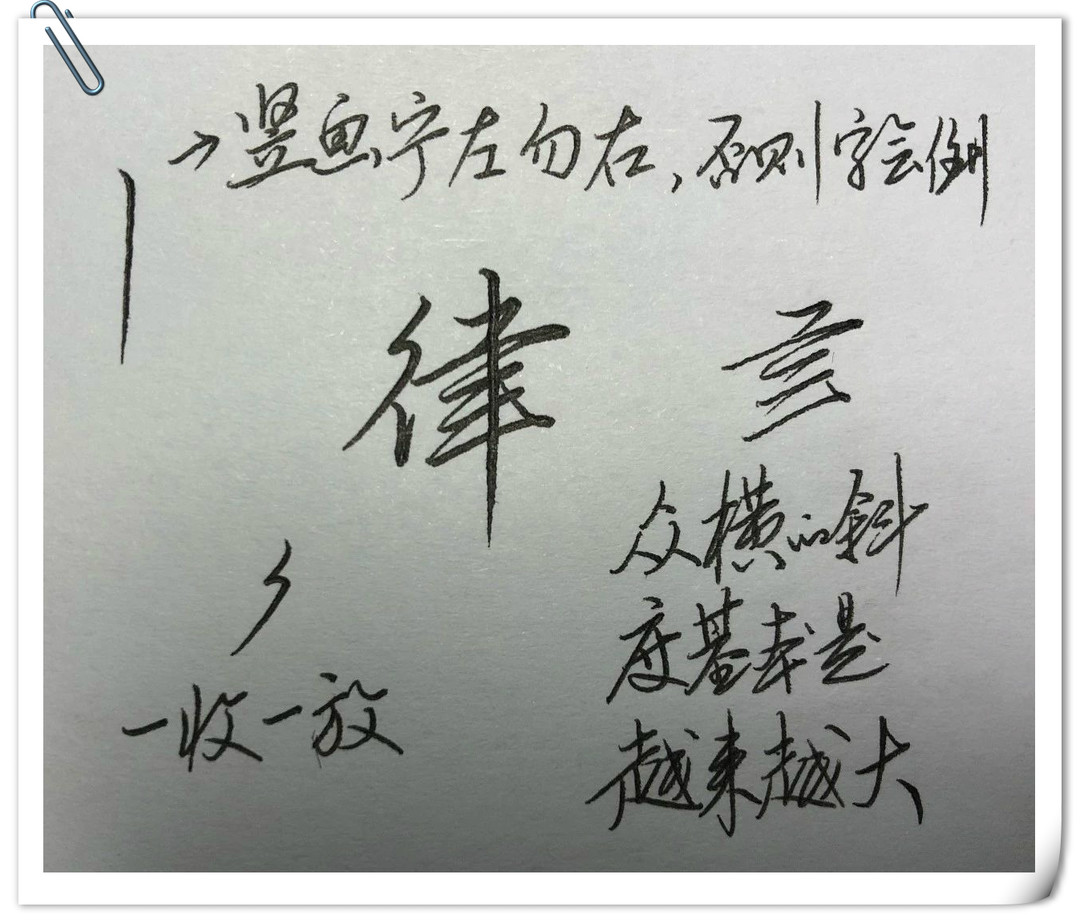 竖画宁左勿右,否则字会倒
律
众横的斜
度基本是
越来越大
一收一放